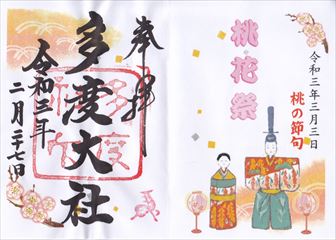 奉拝
多度大社
令和三年
二月二十七日
桃花祭
令和三年三月三日
桃の節句